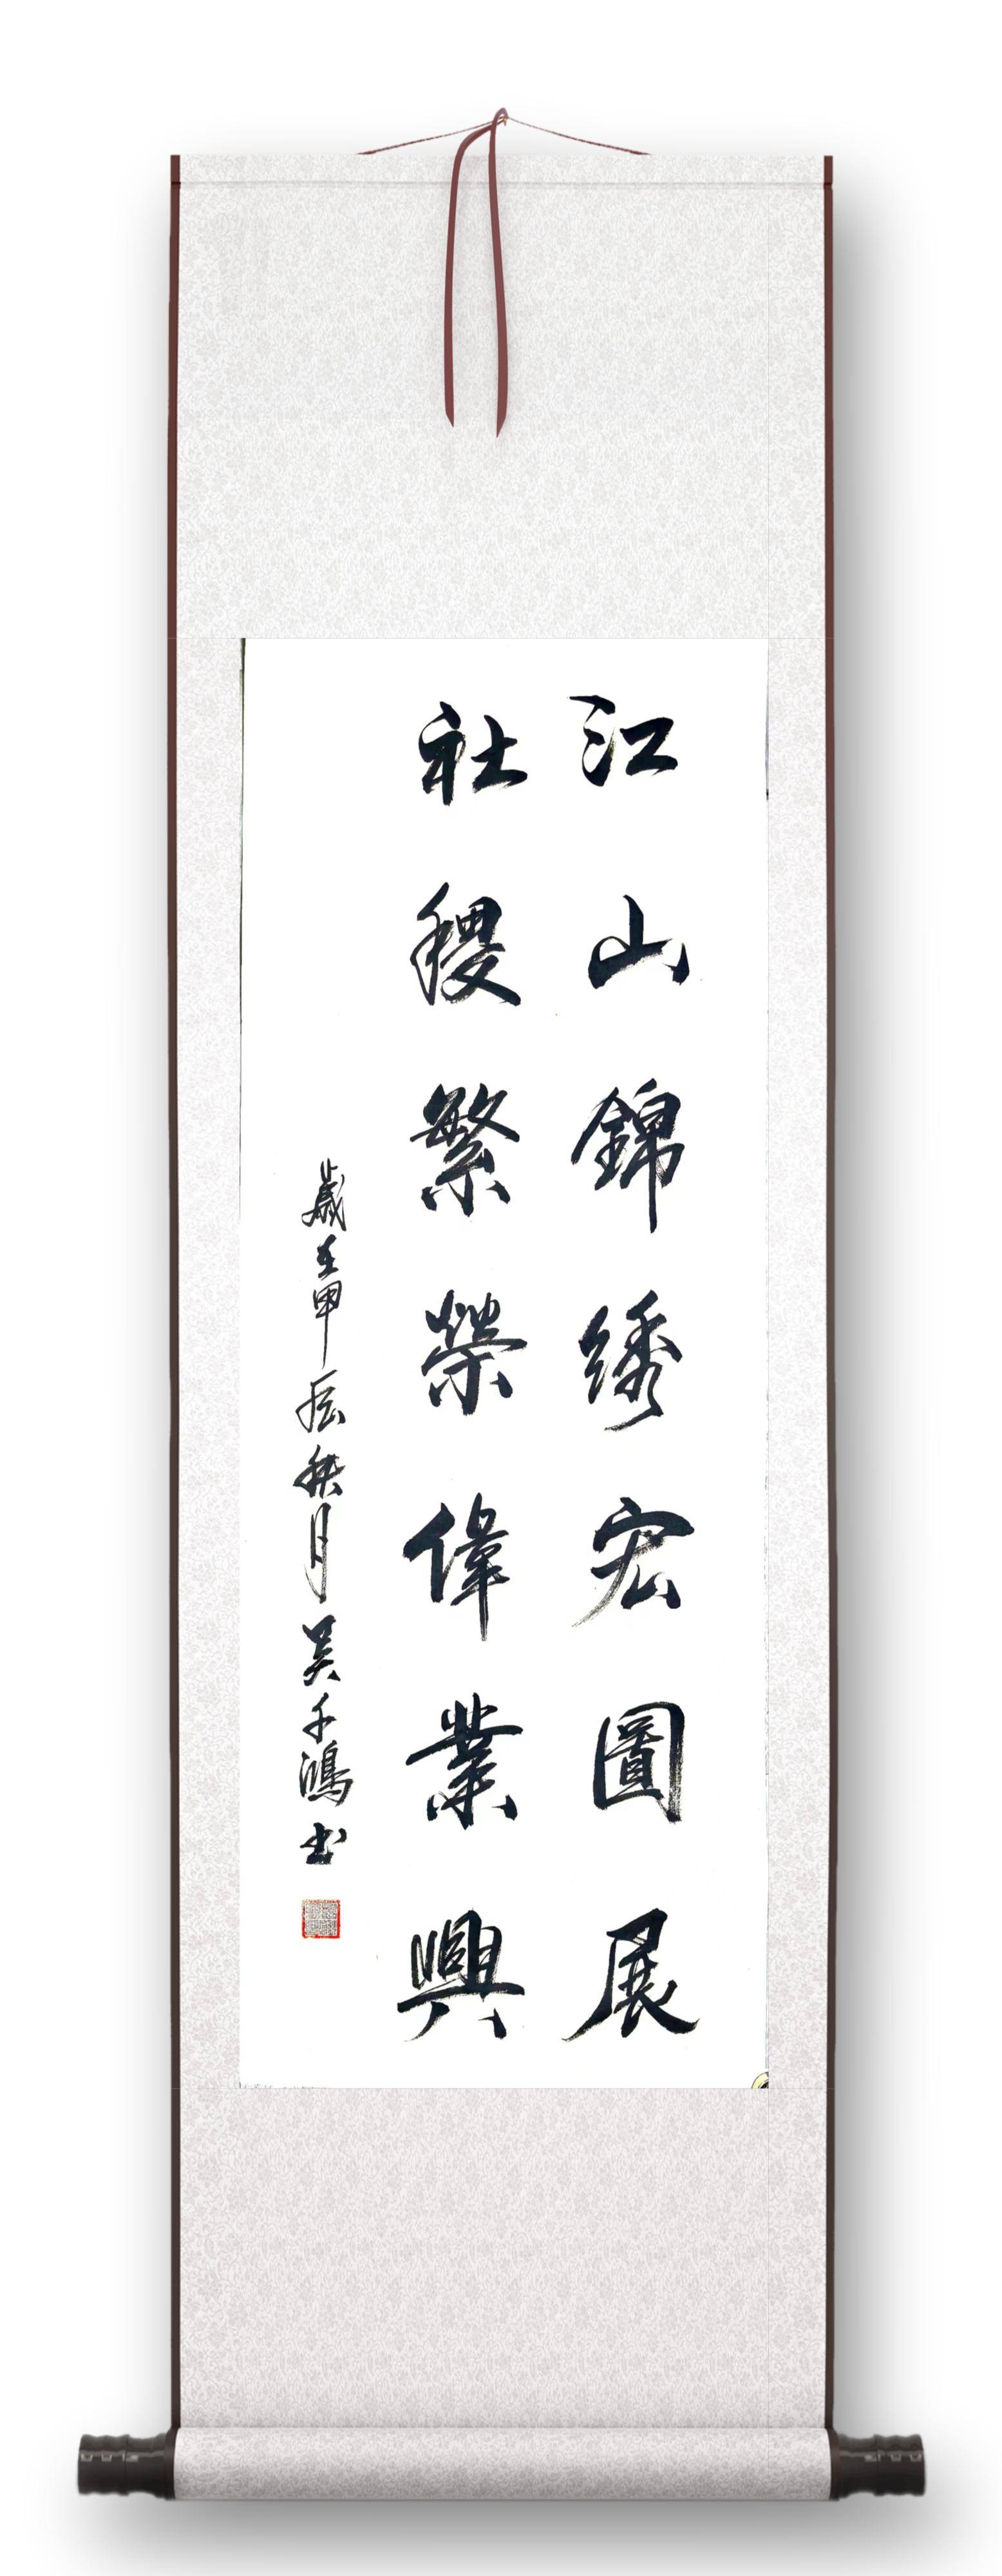 江山錦綉宏圖展
社稷繁榮偉業興
歲在甲辰秋月吴千鴻书